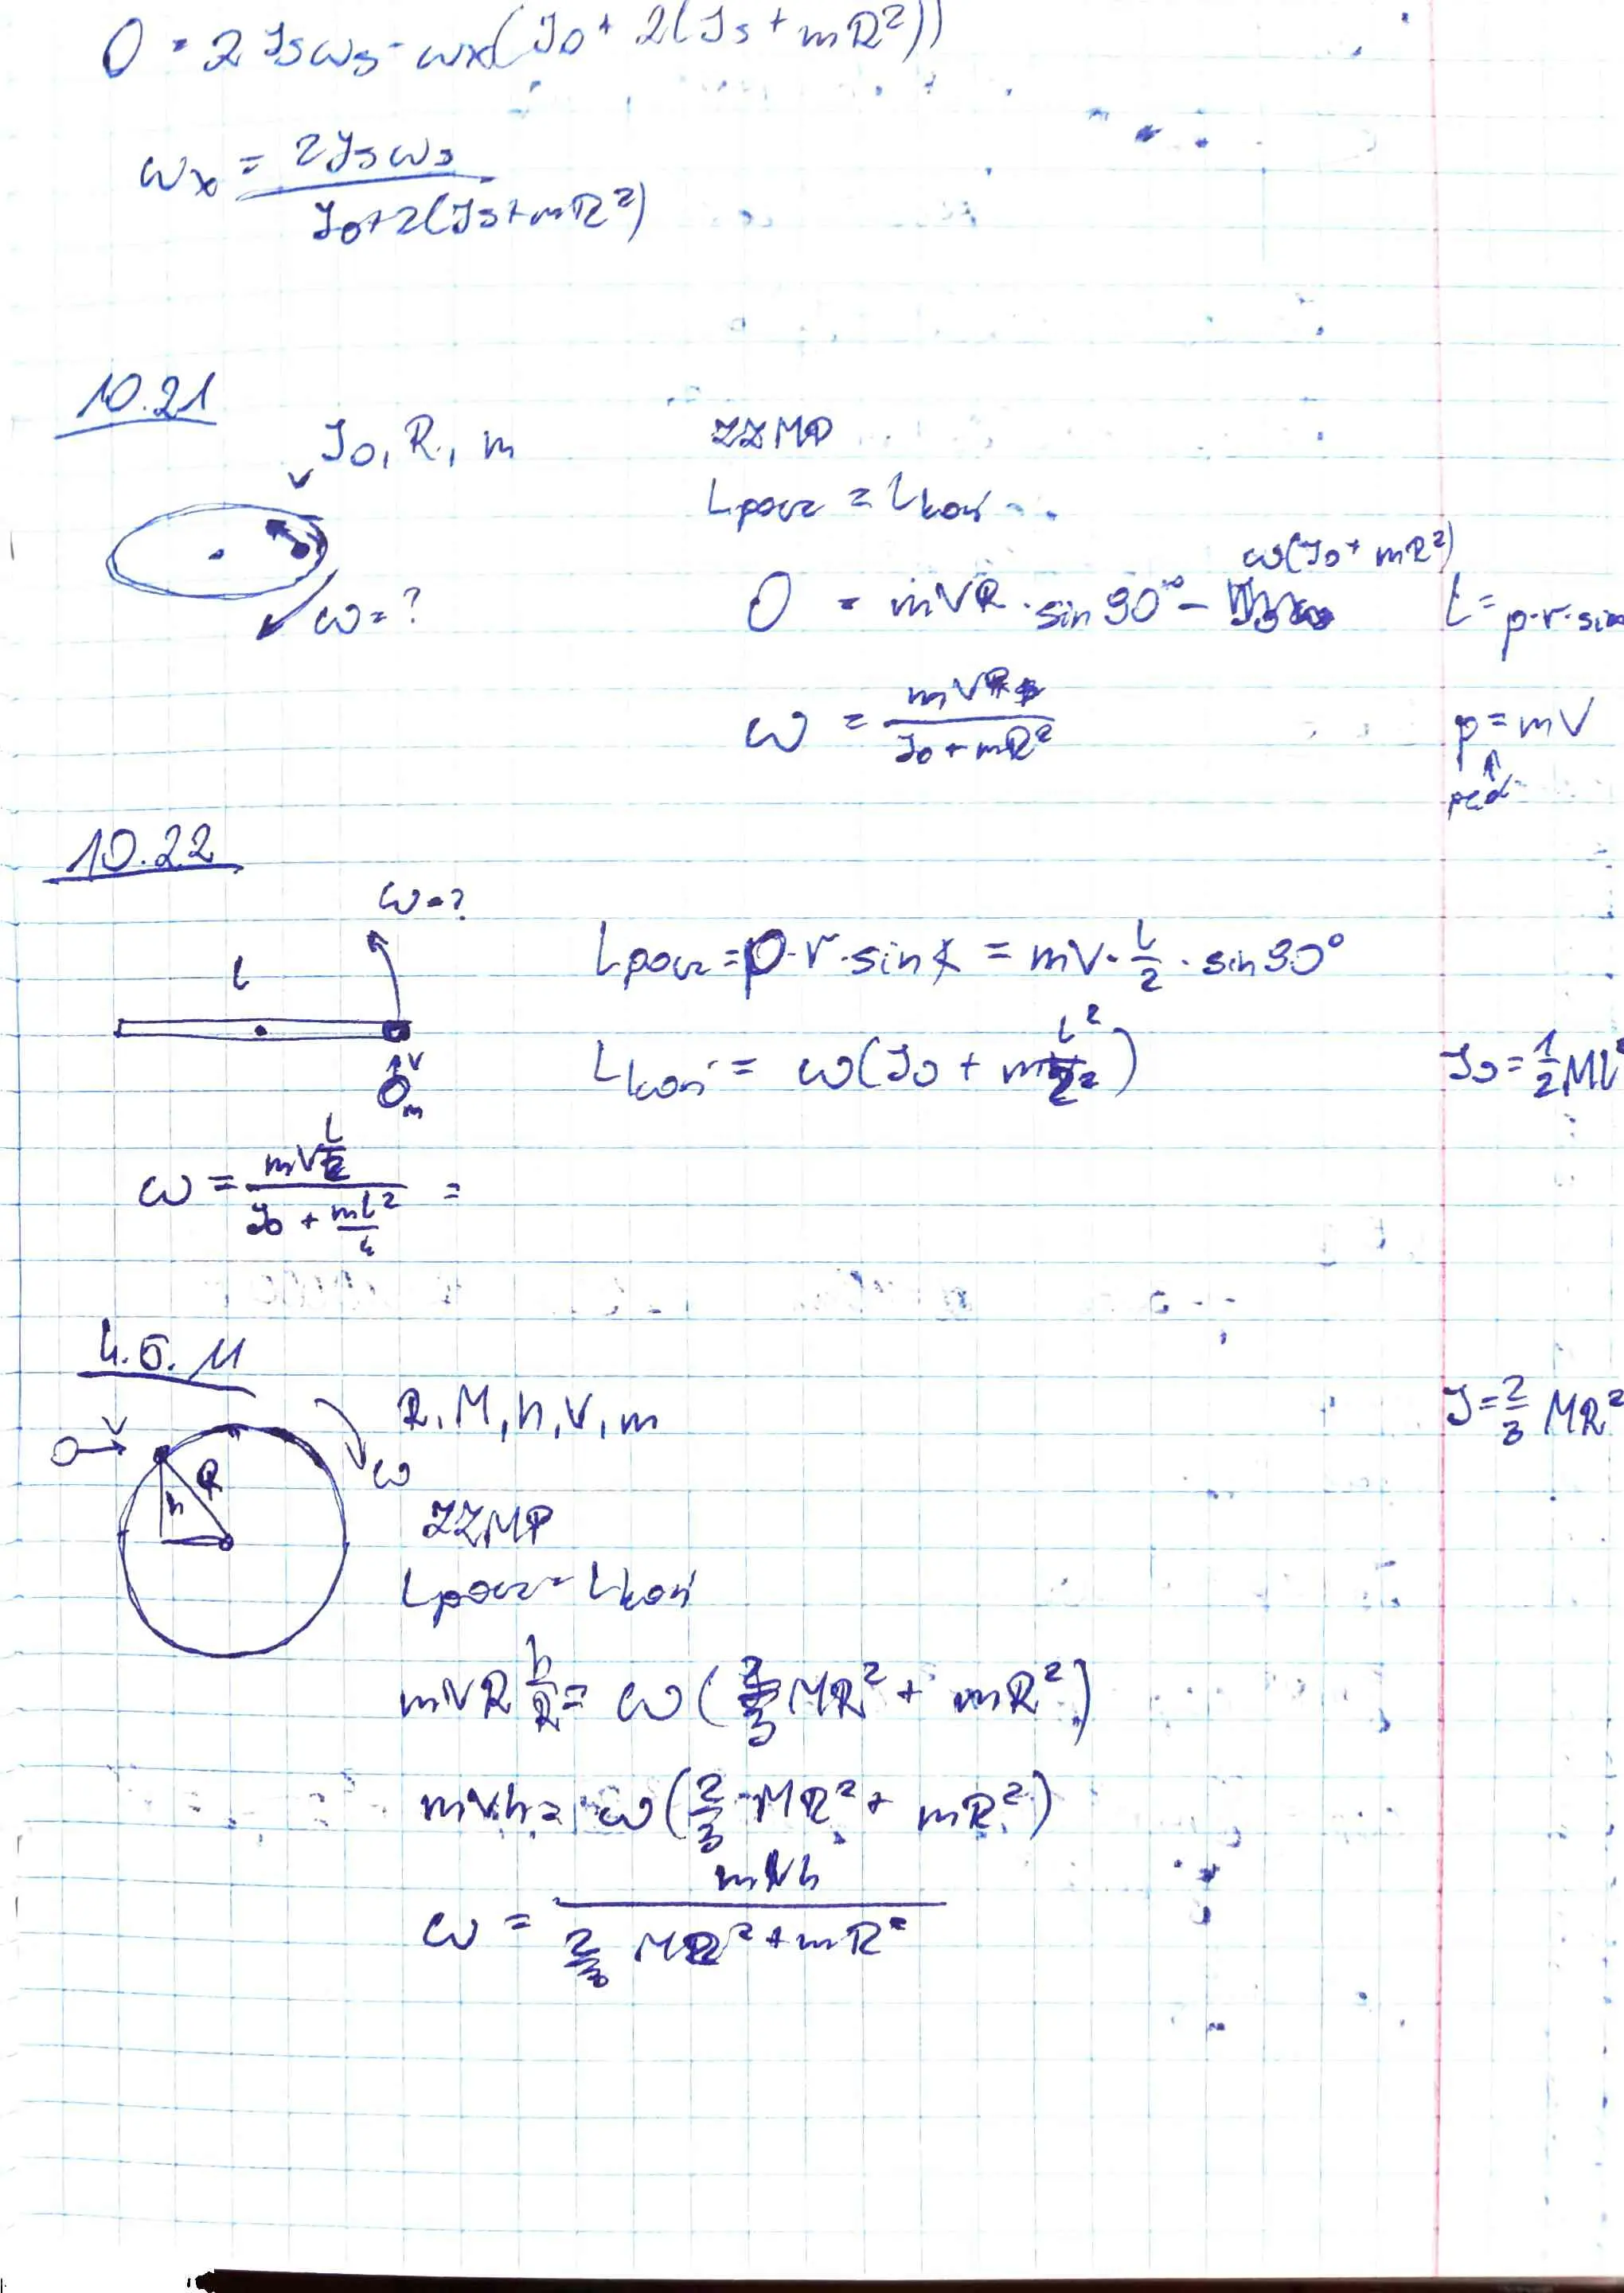 0 = 2 Js ωs - ωx(J0 + 2(Js + mR²))
ωx = 2Js ωs / J0 + 2(Js + mR²)
10.21
J0, R, m
v
ω = ?
ZZMP
Lpocz = Lkoń
ω(J0 + mR²)
0 = mVR · sin 90° -
L = p·r·sin
ω = mVR / J0 + mR²
p = mV
pęd
10.22
ω = ?
l
v
m
Lpocz = p·r·sin α = mV · l/2 · sin 90°
Lkoń = ω(J0 + m l²/2²)
J0 = 1/2 Ml²
ω = mV l/2 / J0 + ml²/4 =
4.6.11
v
R
h
ω
R, M, h, V, m
J = 2/3 MR²
ZZMP
Lpocz = Lkoń
mVR h/R = ω(2/3 MR² + mR²)
mVh = ω(2/3 MR² + mR²)
ω = mVh / 2/3 MR² + mR²